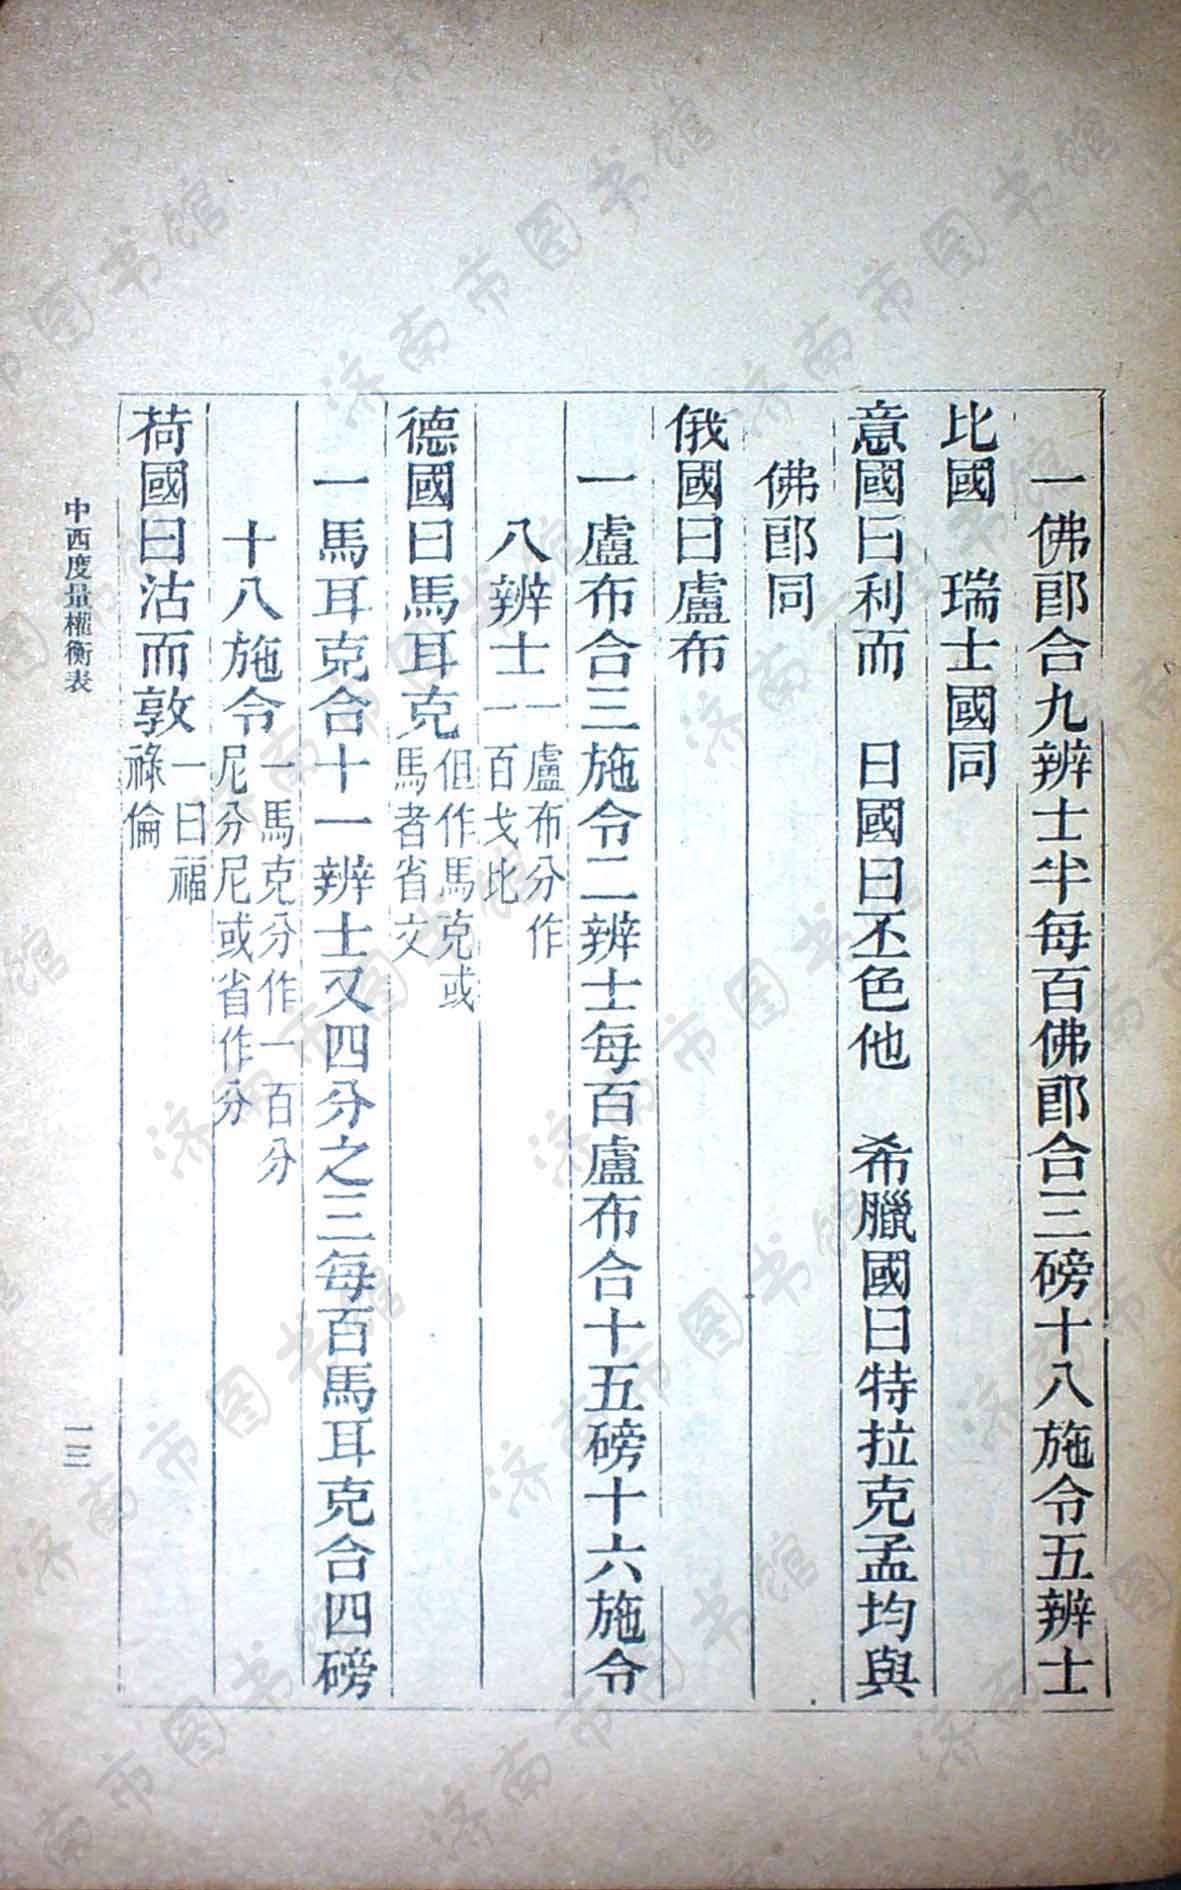 一佛郎合九辨士半每百佛郎合三磅十八施令五辨士
比國　瑞士國同
意國曰利而　日國曰丕色他　希臘國曰特拉克孟均與
佛郎同
俄國曰盧布
一盧布合三施令二辨士每百盧布合十五磅十六施令
八辨士一盧布分作
一百戈比
德國曰馬耳克但作馬克或
馬者省文
一馬耳克合十一辨士又四分之三每百馬耳克合四磅
十八施令一馬克分作一百分
尼分尼或省作分
荷國曰沽而敦一曰福
祿倫
中西度量權衡表
一三
济南市图书馆